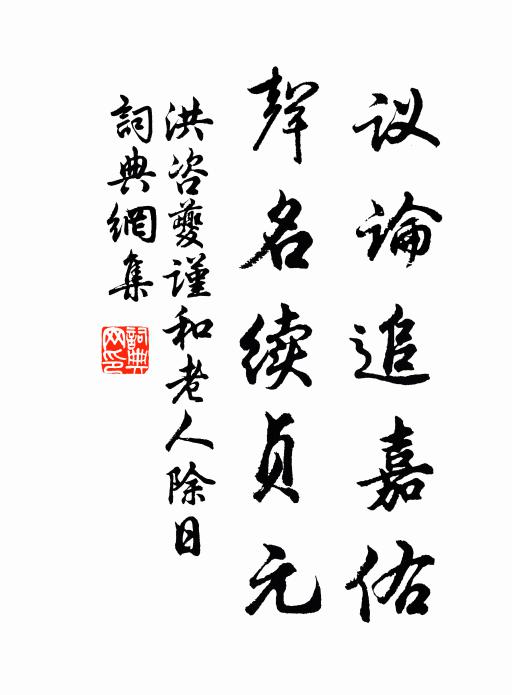 议论追嘉佑
声名续贞元
洪咨夔谨和老人除日
词典网集
词典网印